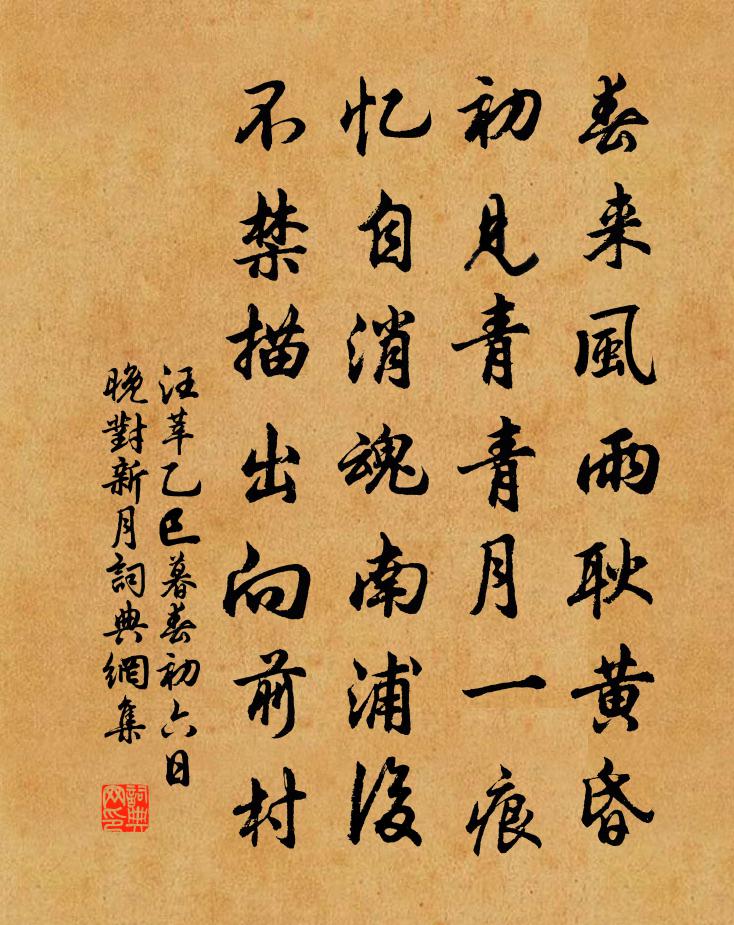 春来風雨耿黄昏
初見青青月一痕
忆自消魂南浦後
不禁描出向前村
汪莘乙巳暮春初六日
晚對新月詞典網集